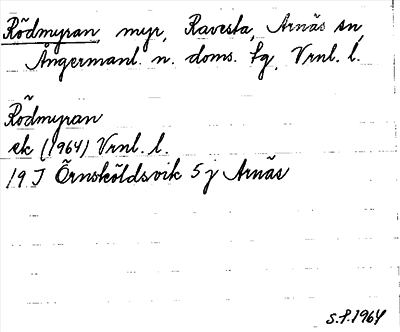 Rödmyran myr, Ravesta, Arnäs sn,
Ångermanl. n. doms. fg, Vrnl. l.
Rödmyran
ek (1964) Vrnl. l.
19 J Örnsköldsvik 5 j Arnäs
S.F. 1964